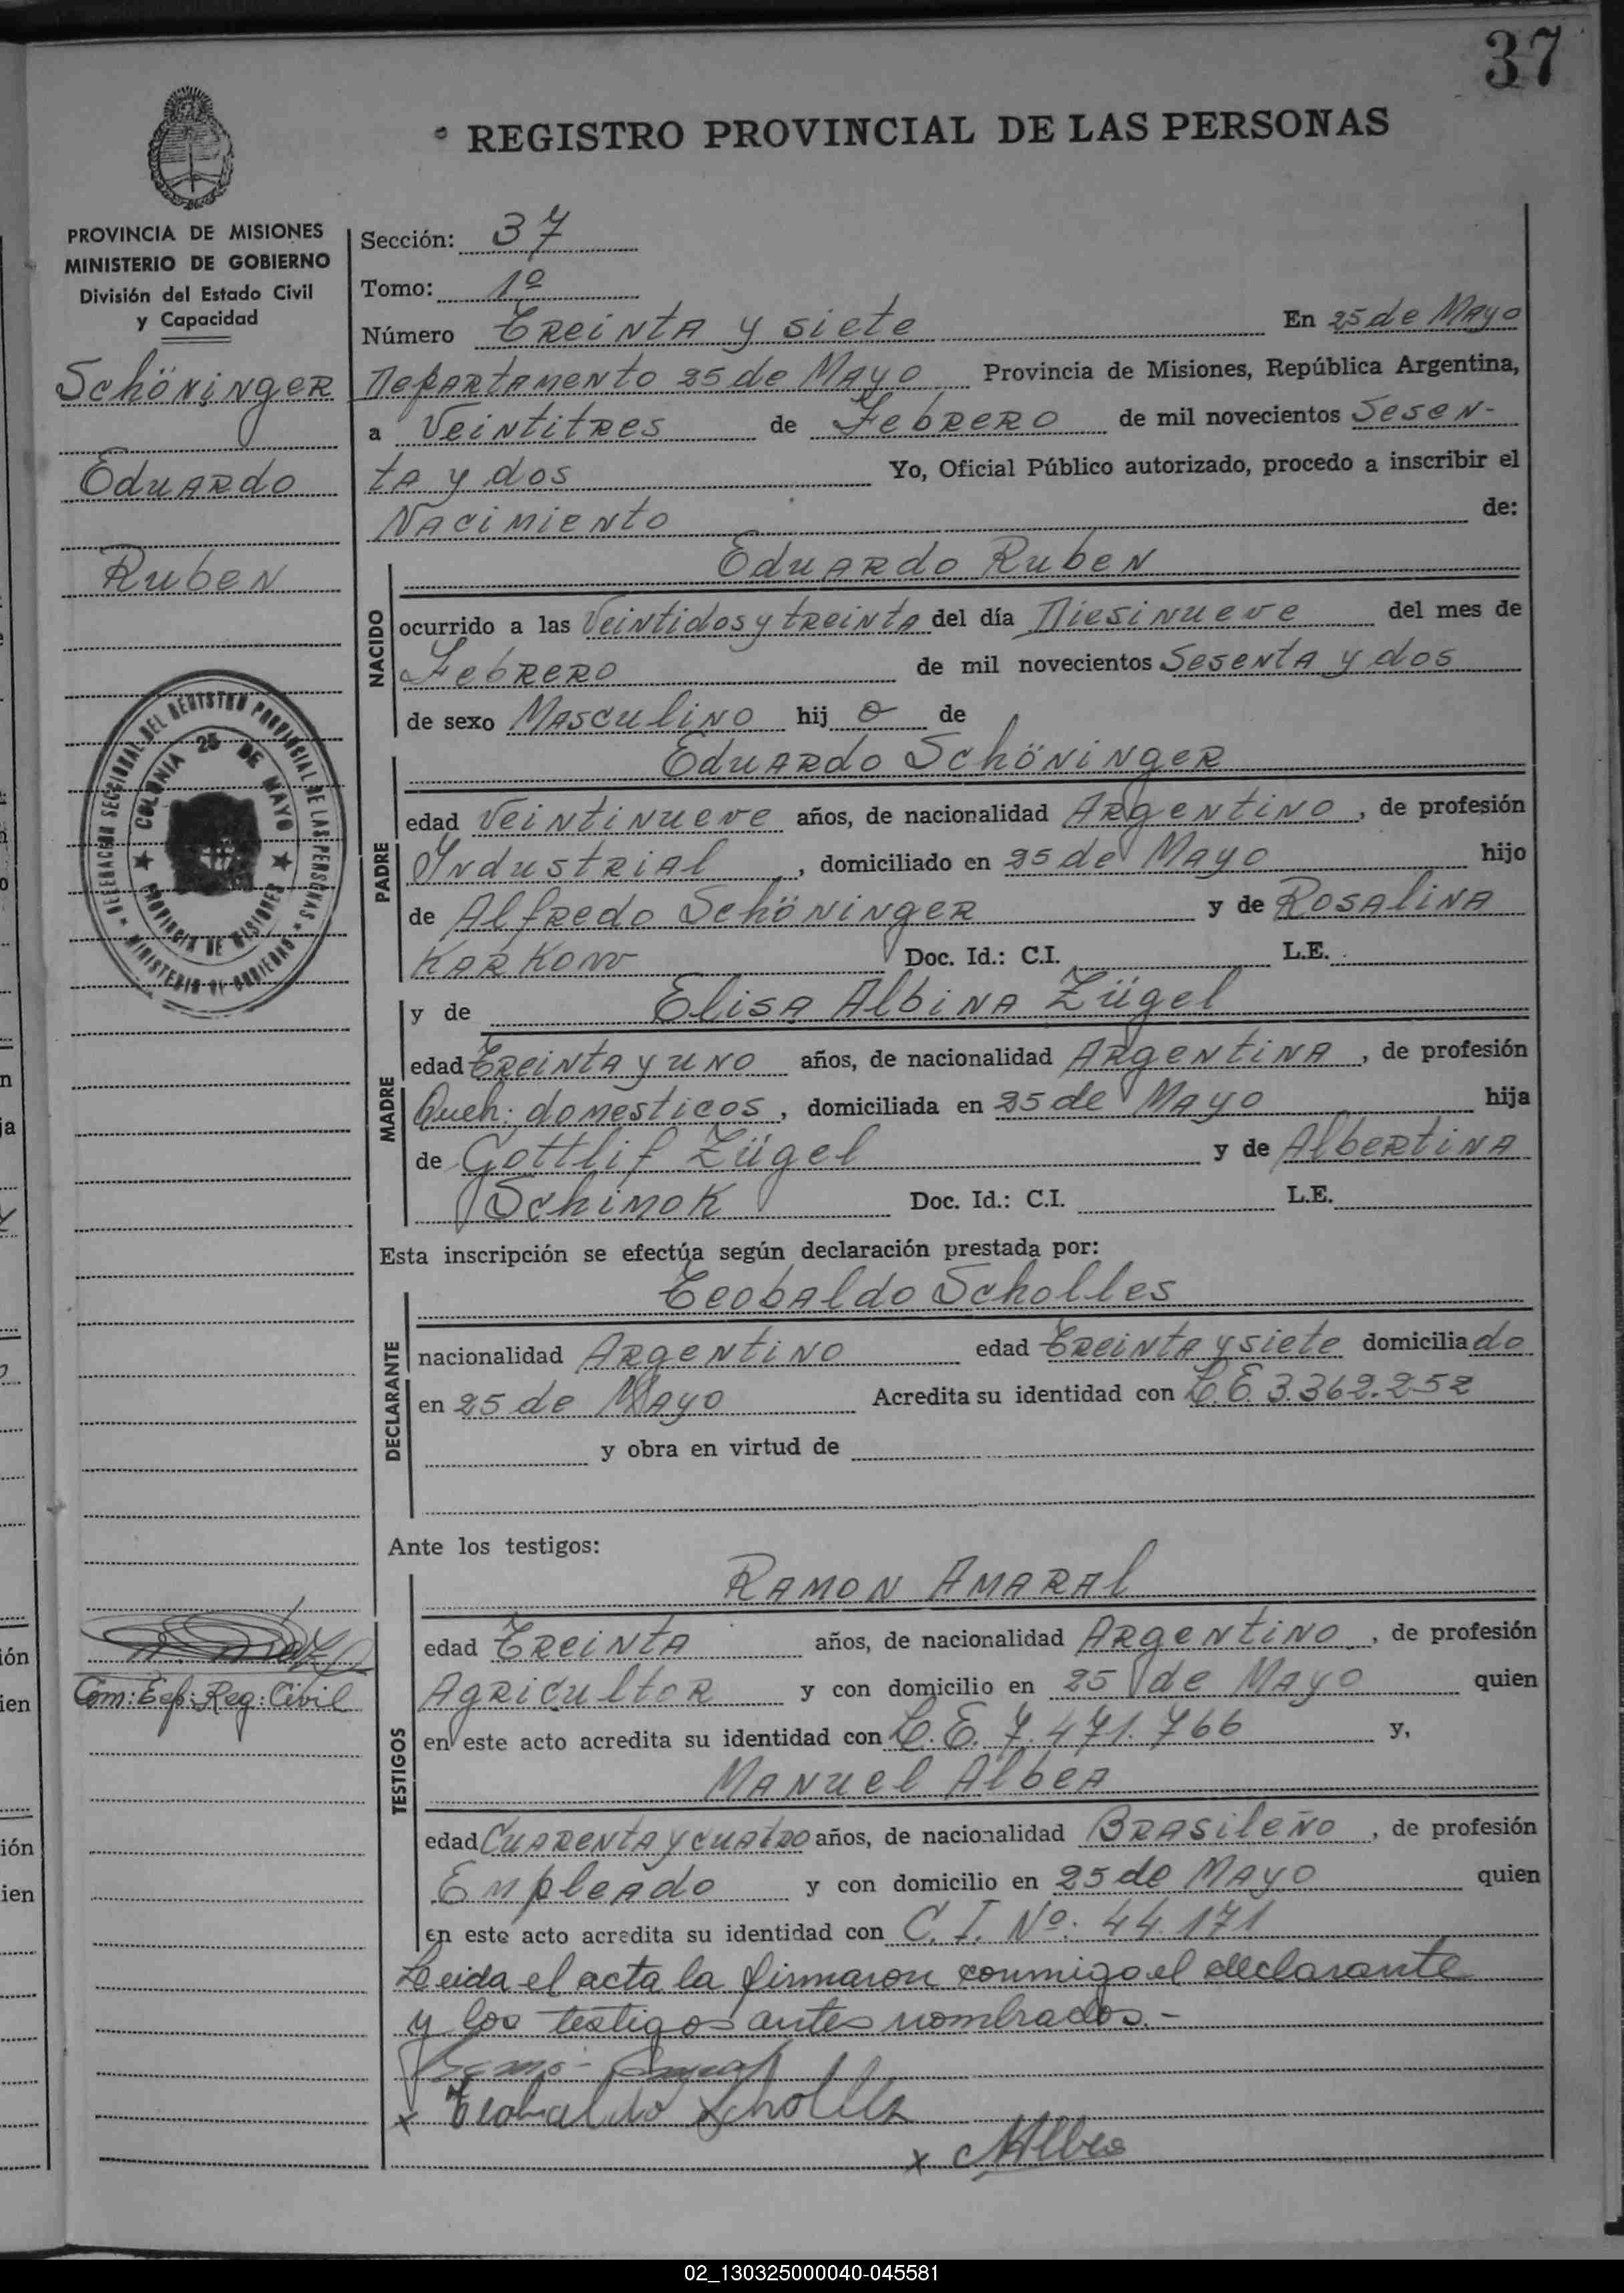 37
REGISTRO PROVINCIAL DE LAS PERSONAS
PROVINCIA DE MISIONES
MINISTERIO DE GOBIERNO
División del Estado Civil
y Capacidad
Schöninger
Eduardo
Ruben
DELEGACION SECCIONAL DEL REGISTRO PROVINCIAL DE LAS PERSONAS
★ MINISTERIO DE GOBIERNO ★
COLONIA 25 DE MAYO
★ PROVINCIA DE MISIONES ★
Com: Esp: Reg: Civil
Sección: 37
Tomo: 1º
Número Treinta y siete En 25 de Mayo
Departamento 25 de Mayo Provincia de Misiones, República Argentina,
a Veintitres de Febrero de mil novecientos Sesen-
ta y dos Yo, Oficial Público autorizado, procedo a inscribir el
Nacimiento de:
NACIDO
Eduardo Ruben
ocurrido a las Veintidos y treinta del día Diesinueve del mes de
Febrero de mil novecientos Sesenta y dos
de sexo Masculino hij o de
PADRE
Eduardo Schöninger
edad Veintinueve años, de nacionalidad Argentino, de profesión
Industrial, domiciliado en 25 de Mayo hijo
de Alfredo Schöninger y de Rosalina
Karkow Doc. Id.: C.I. L.E.
MADRE
y de Elisa Albina Zügel
edad Treinta y uno años, de nacionalidad Argentina, de profesión
Queh: domesticos, domiciliada en 25 de Mayo hija
de Gottlif Zügel y de Albertina
Schimok Doc. Id.: C.I. L.E.
Esta inscripción se efectúa según declaración prestada por:
DECLARANTE
Teobaldo Scholles
nacionalidad Argentino edad Treinta y siete domiciliado
en 25 de Mayo Acredita su identidad con L.E. 3.362.252
y obra en virtud de
Ante los testigos:
TESTIGOS
Ramon Amaral
edad Treinta años, de nacionalidad Argentino, de profesión
Agricultor y con domicilio en 25 de Mayo quien
en este acto acredita su identidad con L.E. 7.471.766 y,
Manuel Albea
edad Cuarenta y cuatro años, de nacionalidad Brasileño, de profesión
Empleado y con domicilio en 25 de Mayo quien
en este acto acredita su identidad con C.I. Nº: 44.171
Leida el acta la firmaron conmigo el declarante
y los testigos antes nombrados.-
x Teobaldo Scholles
x MAlbea
02_130325000040-045581